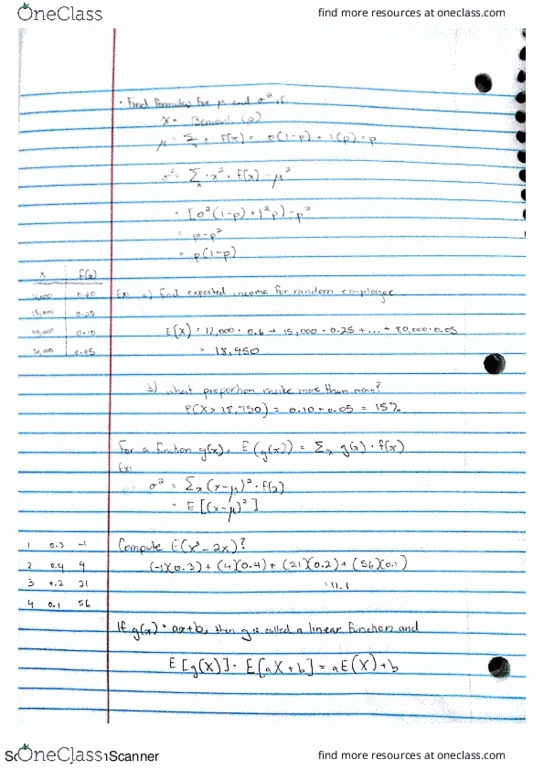 OneClass find more resources at oneclass.com
· Find formulas for μ and σ², if
X = Bernoulli (p)
μ = Σ x · f(x) = 0(1-p) + 1(p) = p
σ² = Σ x² · f(x) - μ²
= [0²(1-p) + 1²p] - p²
= p-p²
= p(1-p)
x f(x)
0.60
15,000 0.25
0.10
0.05
Ex: a) Find expected income for random employee
E(X) = 12,000 · 0.6 + 15,000 · 0.25 + ... + 80,000 · 0.05
= 18,950
b) what proportion make more than mean?
P(X> 18,950) = 0.10 + 0.05 = 15%
For a function g(x), E(g(x)) = Σx g(x) · f(x)
Ex:
σ² = Σx (x-μ)² · f(x)
= E[(x-μ)²]
1 0.3 -1
2 0.4 4
3 0.2 21
4 0.1 56
Compute E(x³ - 2x)?
(-1)(0.3) + (4)(0.4) + (21)(0.2) + (56)(0.1)
= 11.1
If g(x) = ax+b, then g is called a linear function and
E[g(X)] = E[aX+b] = aE(X)+b
OneClass Scanner find more resources at oneclass.com